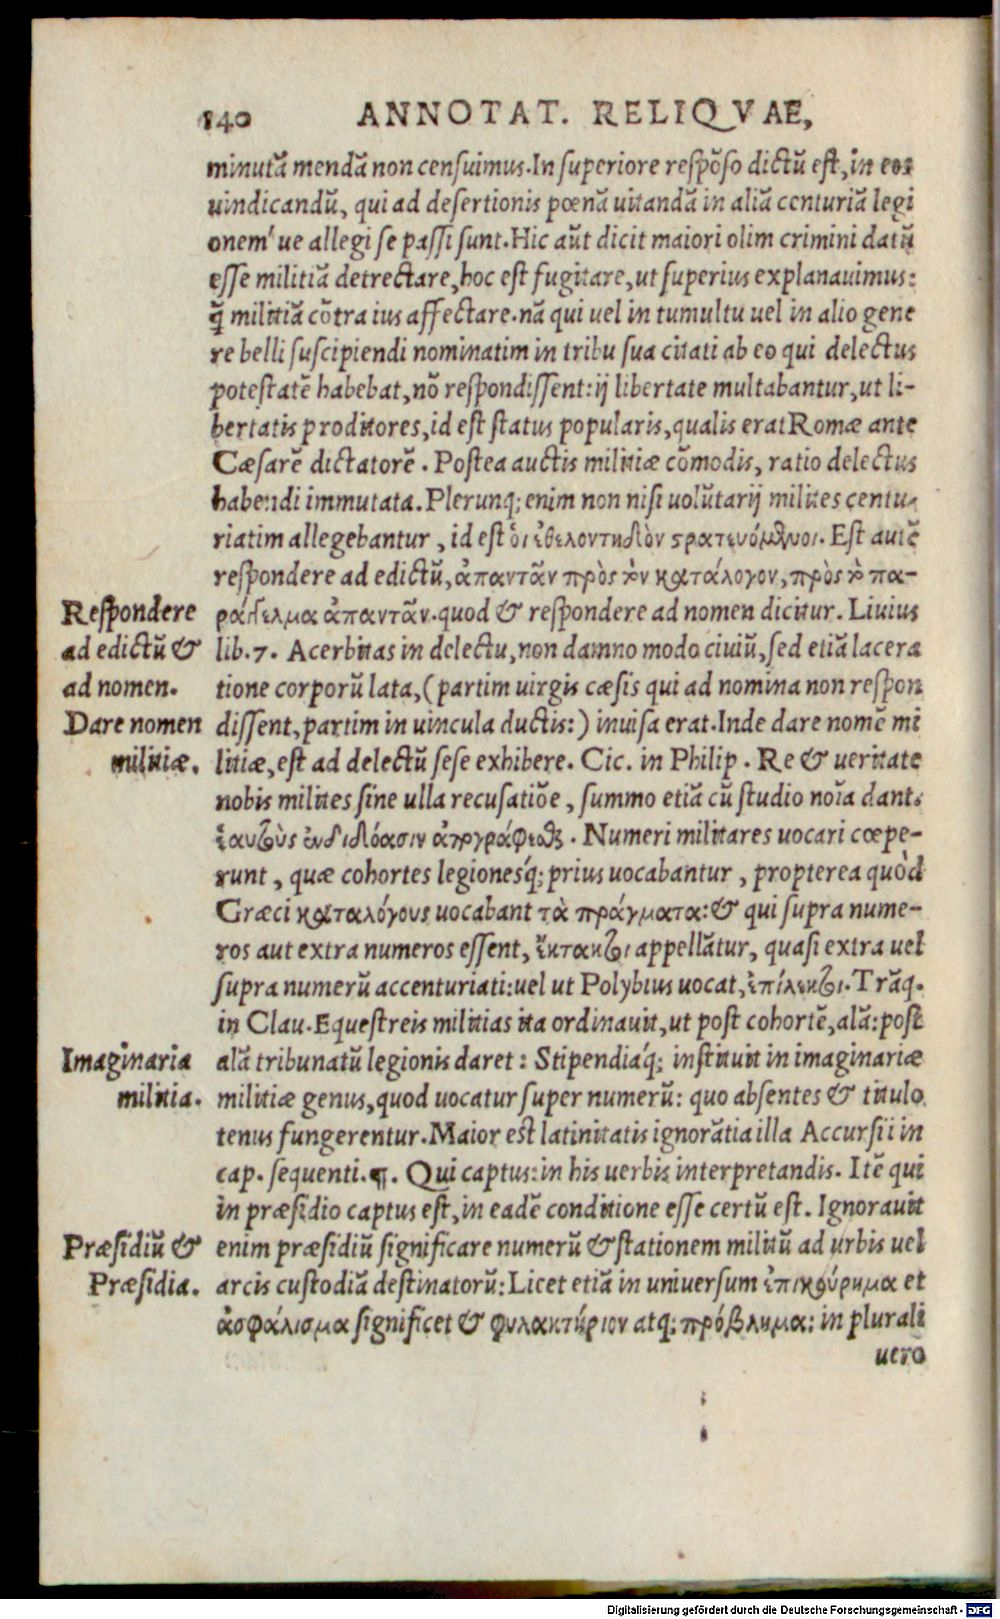 140 ANNOTAT. RELIQVAE,
minutā mendā non censuimus. In superiore respōso dictū est, in eos
uindicandū, qui ad desertionis pœnā uitandā in aliā centuriā legi
onem'ue allegi se passi sunt. Hic aūt dicit maiori olim crimini datū
esse militiā detrectare, hoc est fugitare, ut superius explanauimus:
q̄ militiā cōtra ius affectare. nā qui uel in tumultu uel in alio gene
re belli suscipiendi nominatim in tribu sua citati ab eo qui delectus
potestatē habebat, nō respondissent: ij libertate multabantur, ut li-
bertatis proditores, id est status popularis, qualis erat Romæ ante
Cæsarē dictatorē. Postea auctis militiæ cōmodis, ratio delectus
habendi immutata. Plerunq; enim non nisi uolūtarij milites centu-
riatim allegebantur, id est οἱ ἐθελοντηδὸν στρατευόμενοι. Est autē
respondere ad edictū, ἀπαντᾶν πρὸς τὸν κατάλογον, πρὸς τὸ πα-
Respondere
ad edictū &
ad nomen.
ράγγελμα ἀπαντᾶν. quod & respondere ad nomen dicitur. Liuius
lib. 7. Acerbitas in delectu, non damno modo ciuiū, sed etiā lacera
tione corporū lata, (partim uirgis cæsis qui ad nomina non respon
Dare nomen
militiæ.
dissent, partim in uincula ductis:) inuisa erat. Inde dare nomē mi
litiæ, est ad delectū sese exhibere. Cic. in Philip. Re & ueritate
nobis milites sine ulla recusatiōe, summo etiā cū studio noīa dant.
ἑαυτοὺς ἐνδιδόασιν ἀπογράφεσθαι. Numeri militares uocari cœpe-
runt, quæ cohortes legionesq́; prius uocabantur, propterea quòd
Græci καταλόγους uocabant τὰ πράγματα: & qui supra nume-
ros aut extra numeros essent, ἔκτακτοι appellātur, quasi extra uel
supra numerū accenturiati: uel ut Polybius uocat, ἐπίλεκτοι. Trāq.
in Clau. Equestreis militias ita ordinauit, ut post cohortē, alā: post
Imaginaria
militia.
alā tribunatū legionis daret: Stipendiaq́; instituit in imaginariæ
militiæ genus, quod uocatur super numerū: quo absentes & titulo
tenus fungerentur. Maior est latinitatis ignorātia illa Accursii in
cap. sequenti. ¶. Qui captus: in his uerbis interpretandis. Itē qui
in præsidio captus est, in eadē conditione esse certū est. Ignorauit
Præsidiū &
Præsidia.
enim præsidiū significare numerū & stationem militū ad urbis uel
arcis custodiā destinatorū: Licet etiā in uniuersum ἐπικούρημα et
ἀσφάλισμα significet & φυλακτήριον atq; πρόβλημα: in plurali
uero
Digitalisierung gefördert durch die Deutsche Forschungsgemeinschaft - DFG